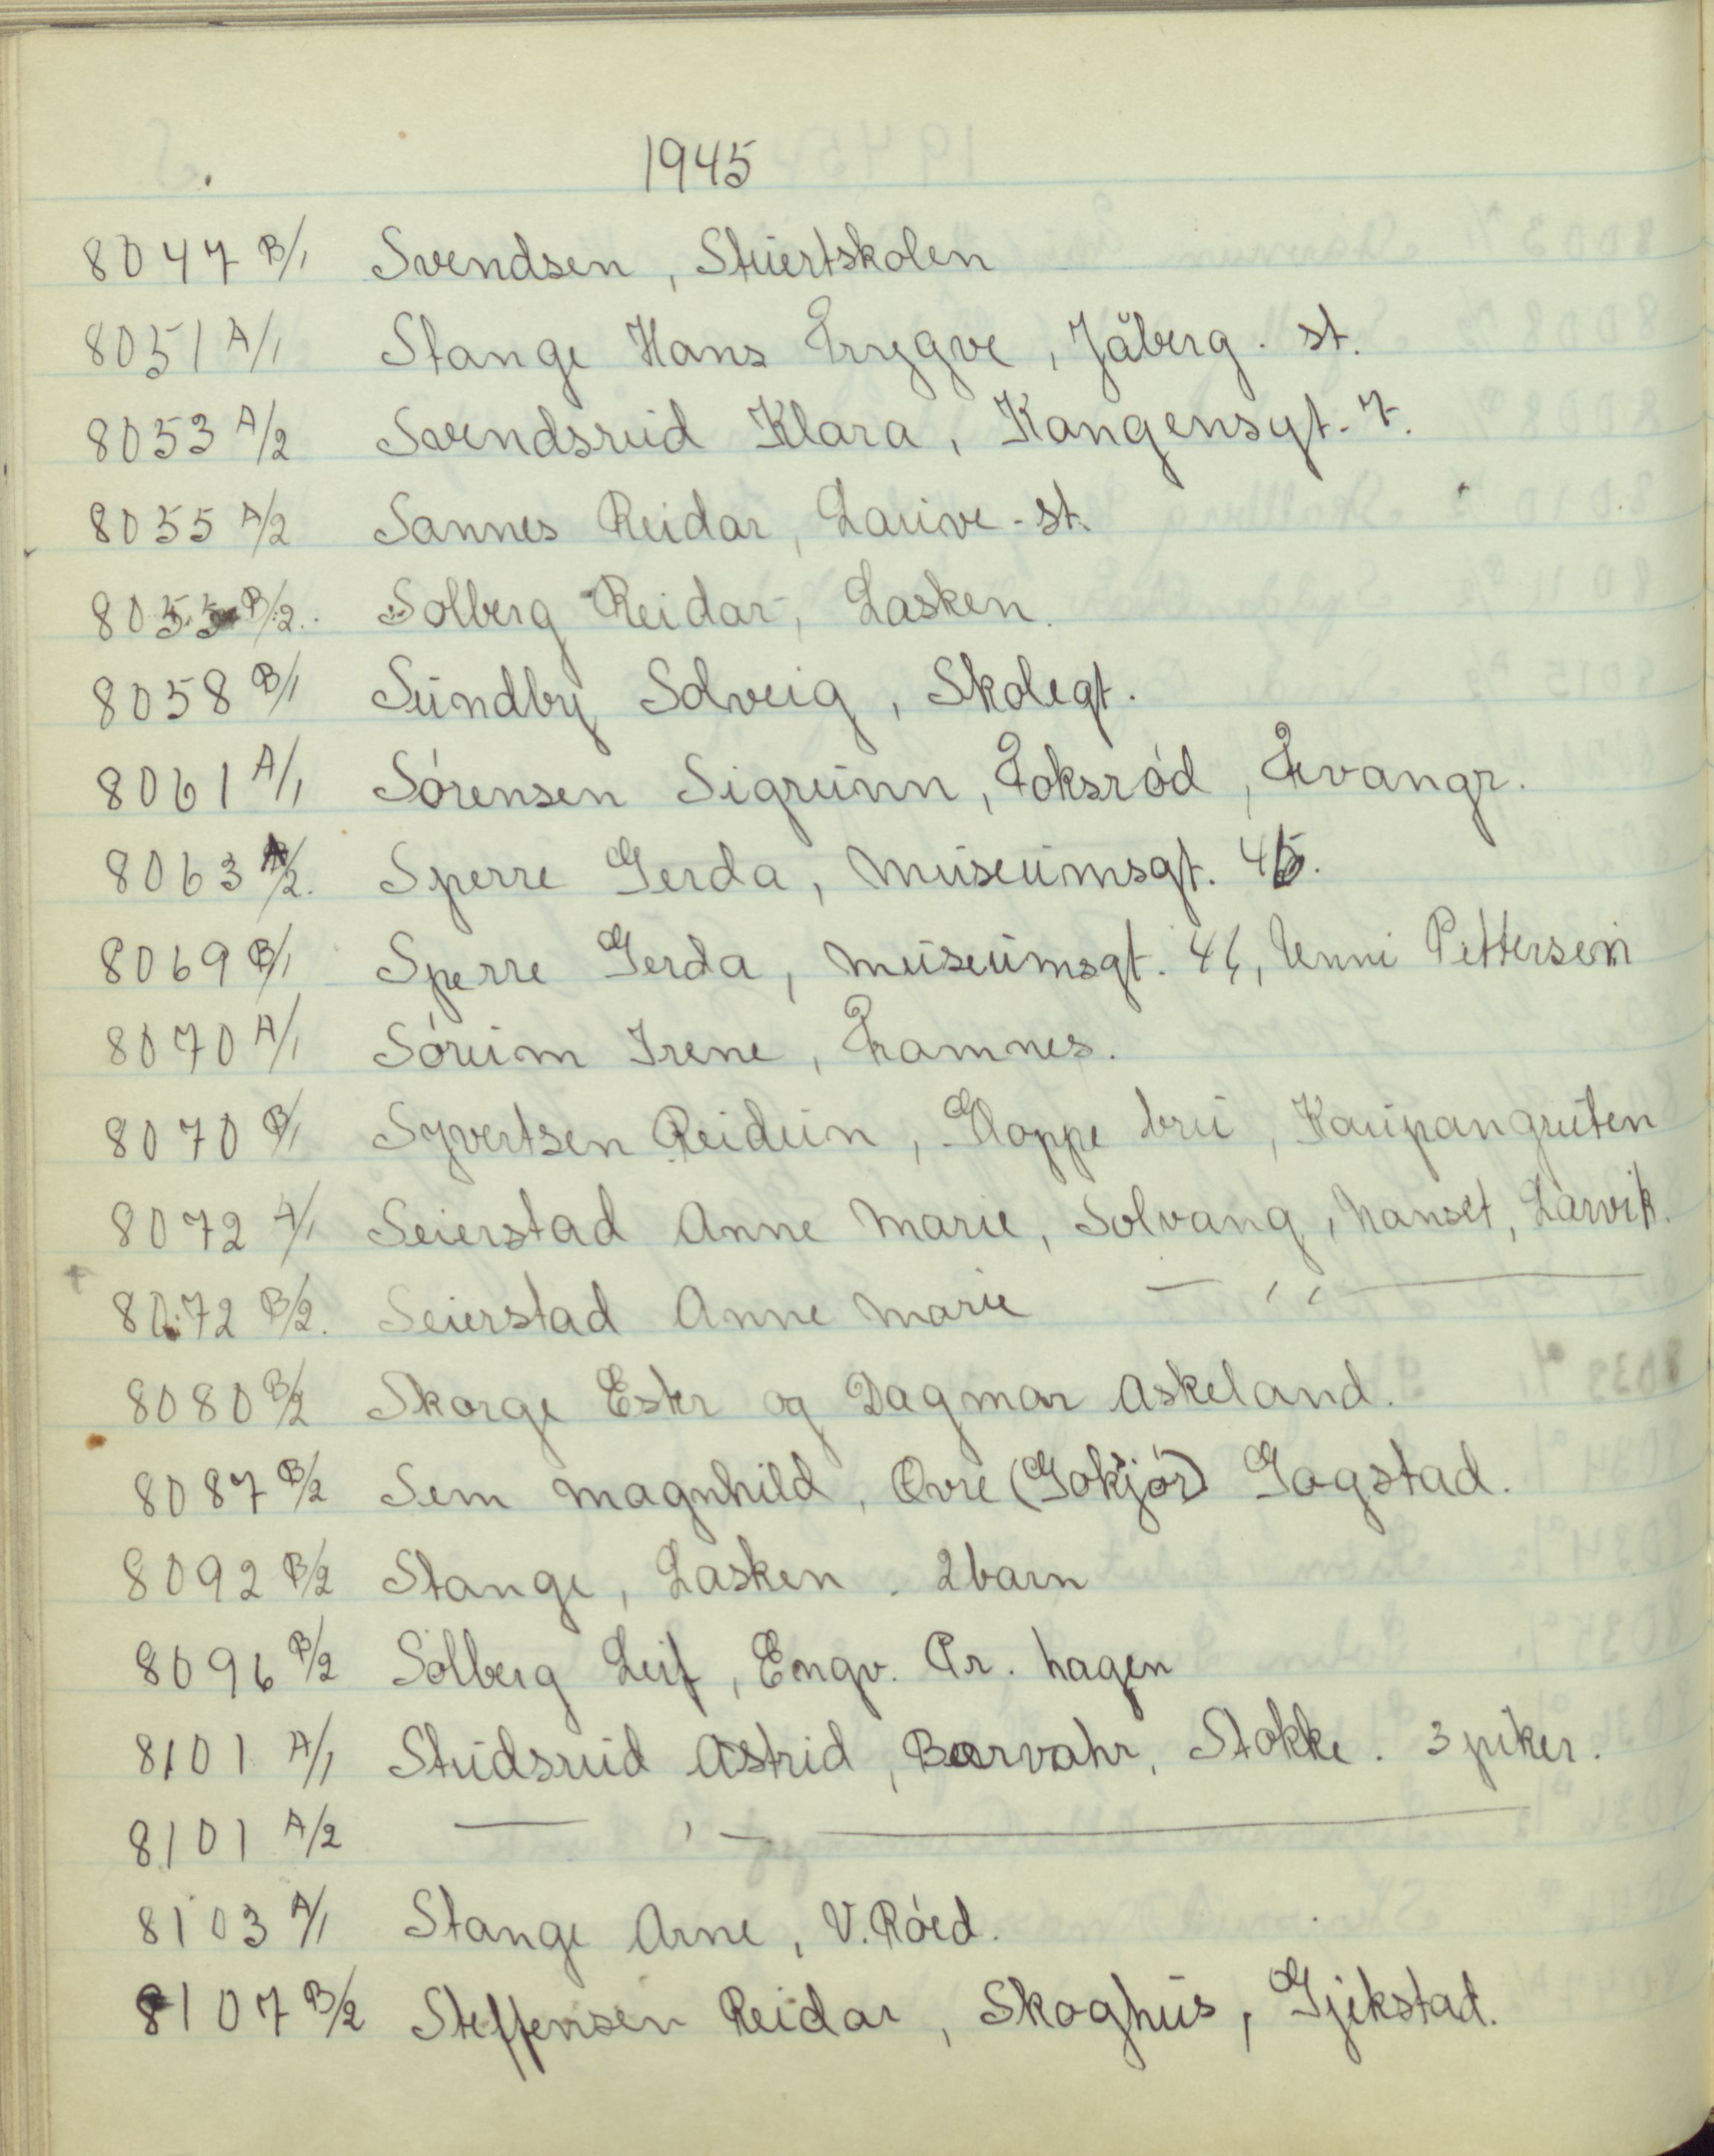 1945
8047 B/1 Svendsen, Stuertskolen
8051 A/1 Stange Hans Trygve, Jåberg. st.
8053 A/2 Svendsrud Klara, Kongensgt. 7.
8055 A/2 Sannes Reidar, Lauve-st.
8055 B/2. Solberg Reidar, Lasken.
8058 B/1 Sundby Solveig, Skolegt.
8061 A/1 Sörensen Sigrunn, Foksröd, Kvangr.
8063 A/2. Sperre Gerda, Museumsgt. 46.
8069 B/1 Sperre Gerda, Museumsgt. 46, Unni Pettersen
8070 A/1 Söreim Irene, Ramnes.
8070 B/1 Syvertsen Reidun, Gloppe bru, Kaupangruten
8072 A/1 Seierstad Anne Marie, Solvang, Nanset, Larvik.
8072 B/2. Seierstad Anne Marie — ,, —
8080 B/2 Skorge Ester og Dagmar Askeland.
8087 B/2 Sem Magnhild, Övre (Gokjör) Gogstad.
8092 B/2 Stange, Lasken. 2 barn
8096 B/2 Solberg Leif, Engv. Pr. hagen
8101 A/1 Studsrud Astrid, Borvahr, Stokke. 3 piker.
8101 A/2 — ,, —
8103 A/1 Stange Arne, V. Röed.
8107 B/2 Steffensen Reidar, Skoghus, Gjekstad.